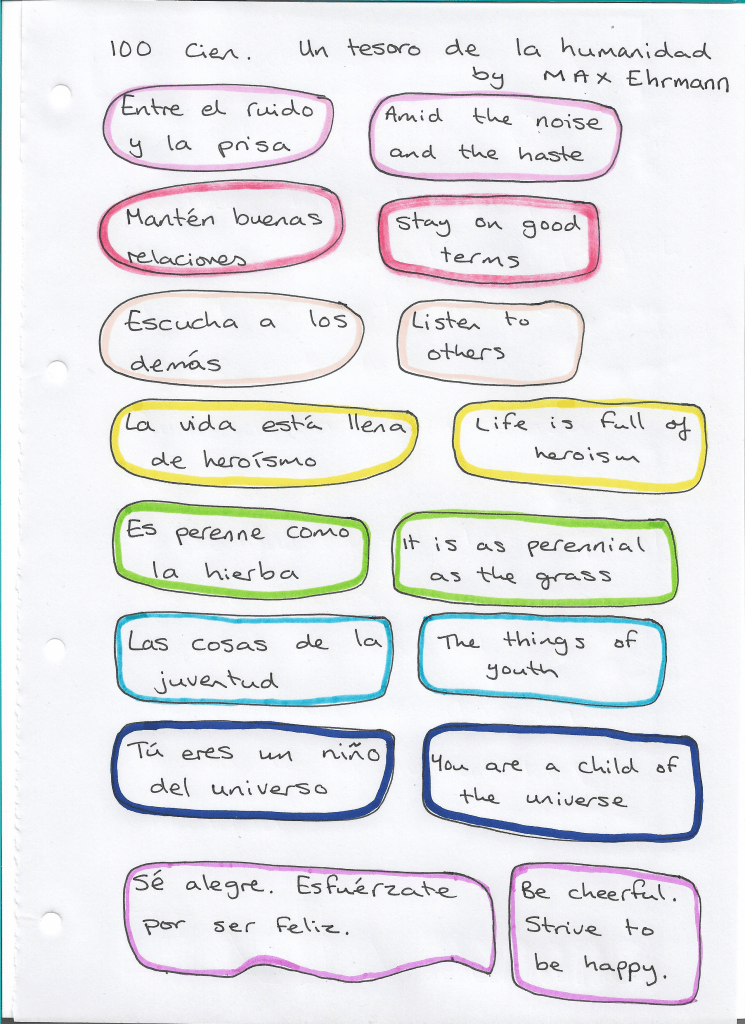 100 Cien. Un tesoro de la humanidad
by MAX Ehrmann
Entre el ruido
y la prisa
Amid the noise
and the haste
Mantén buenas
relaciones
Stay on good
terms
Escucha a los
demás
Listen to
others
La vida está llena
de heroísmo
Life is full of
heroism
Es perenne como
la hierba
It is as perennial
as the grass
Las cosas de la
juventud
The things of
youth
Tú eres un niño
del universo
You are a child of
the universe
Sé alegre. Esfuérzate
por ser feliz.
Be cheerful.
Strive to
be happy.